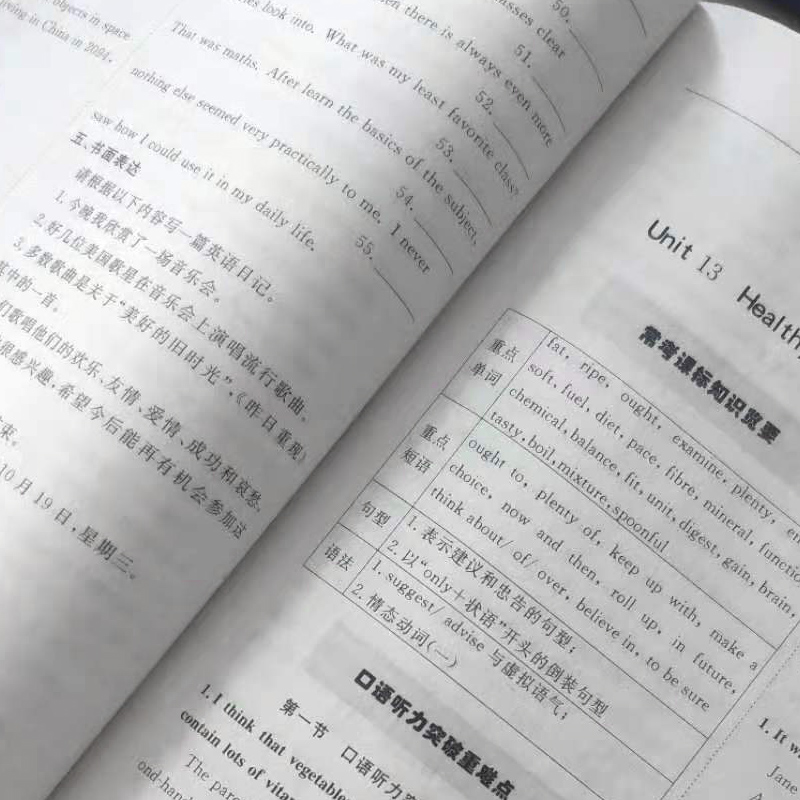 objects in space
ving in China in 2024.
50.
asses clear
es look into. What was my least favorite class?
en there is always even more
51.
52.
That was maths. After learn the basics of the subject,
53.
nothing else seemed very practically to me. I never
54.
saw how I could use it in my daily life.
55.
五、书面表达
请根据以下内容写一篇英语日记。
1. 今晚我欣赏了一场音乐会。
2. 好几位美国歌星在音乐会上演唱流行歌曲。
3. 多数歌曲是关于“美好的旧时光”,《昨日重现》
其中的一首。
们歌唱他们的欢乐、友情、爱情、成功和哀愁。
很感兴趣,希望今后能再有机会参加这
束。
10月19日,星期三。
Unit 13 Health
常考课标知识览要
重点单词
fat, ripe, ought, examine, plenty, en
soft, fuel, diet, pace, fibre, mineral, functio
chemical, balance, fit, unit, digest, gain, brain,
tasty, boil, mixture, spoonful
重点短语
ought to, plenty of, keep up with, make a
choice, now and then, roll up, in future,
think about/ of/ over, believe in, to be sure
句型
1. 表示建议和忠告的句型;
2. 以“only+状语”开头的倒装句型
语法
1. suggest/ advise 与虚拟语气;
2. 情态动词(一)
口语听力突破重难点
第一节 口语听力突
1. I think that vegetable
contain lots of vita
The pare
ond-hand
1. It w
Jane